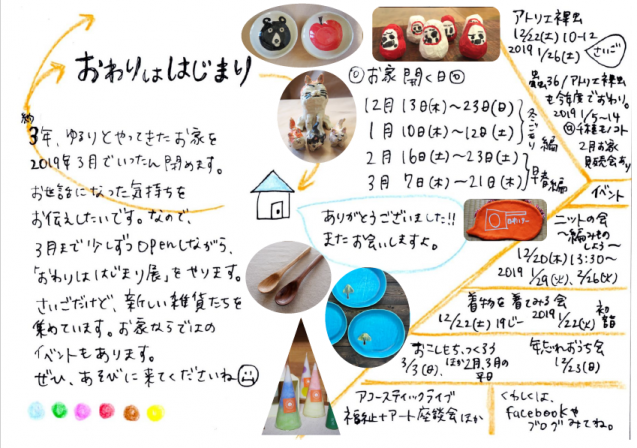 おわりははじまり
約
3年、ゆるりとやってきたお家を
2019年3月でいったん閉めます。
お世話になった気持ちを
お伝えしたいです。なので、
3月まで少しずつopenしながら、
「おわりははじまり展」をやります。
さいごだけど、新しい雑貨たちを
集めています。お家ならではの
イベントもあります。
ぜひ、あそびに来てくださいね
お家 開く日
12月 13日(木)〜23日(日)
1月 10日(木)〜12日(土)
冬ごもり編
2月 16日(土)〜23日(土)
3月 7日(木)〜21日(木)
早春編
ありがとうございました!!
またお会いしますよ。
アトリエ裸虫
12/22(土)10-12
2019 1/26(土)
さいご
36/アトリエ裸虫
も今年度でおわり。
2019 1/5〜14
2月お家
イベント
ニットの会
〜編みもの
しよう〜
12/20(木)13:30〜
2019 1/29(火)、2/26(火)
着物を着てみる会
12/22(土)19じー
2019 1/22(火)
初詣
おこしもち、つくろう
3/3(日)、ほか2月、3月の
平日
年忘れおうち会
12/23(日)
アコースティックライブ
福祉+アート座談会ほか
くわしくは、
facebookや
ブログみてね。